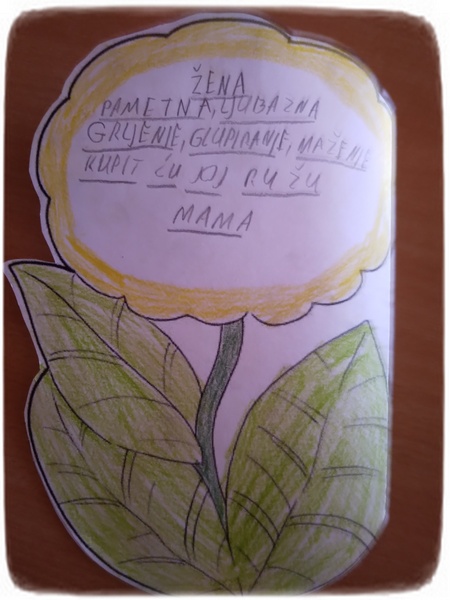 ŽENA
PAMETNA, LJUBAZNA
GRLJENJE, GLUPIRANJE, MAŽENJE
KUPIT ĆU JOJ RUŽU
MAMA